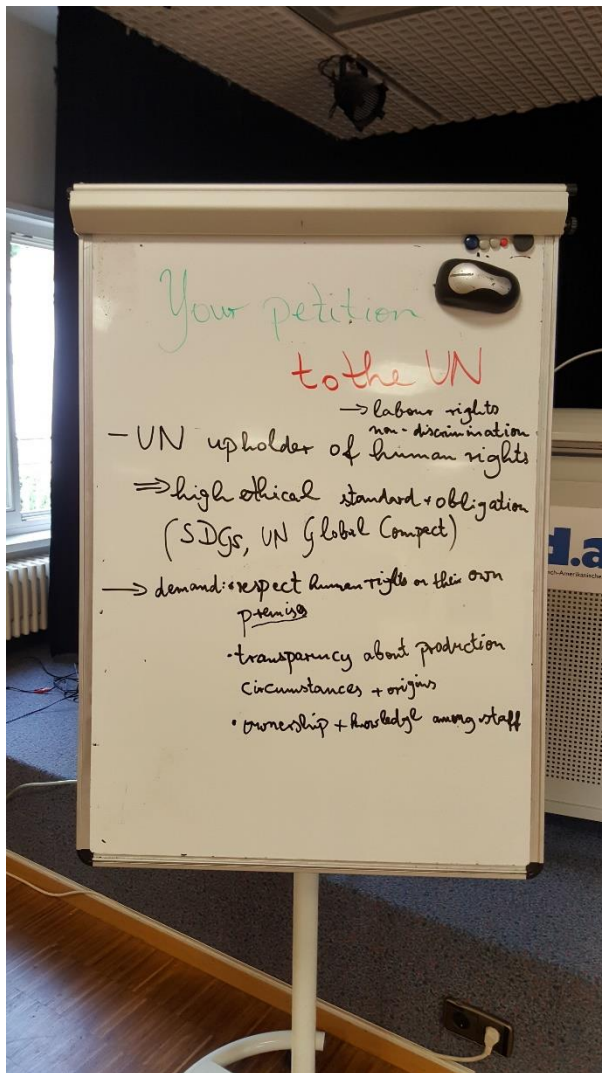 Your petition
to the UN
→ labour rights
non-discrimination
- UN upholder of human rights
⇒ high ethical standard + obligation
(SDGs, UN Global Compact)
→ demand: • respect human rights on their own
premises
• transparency about production
circumstances + origins
• ownership + knowledge among staff
d.a
ch-Amerikanische